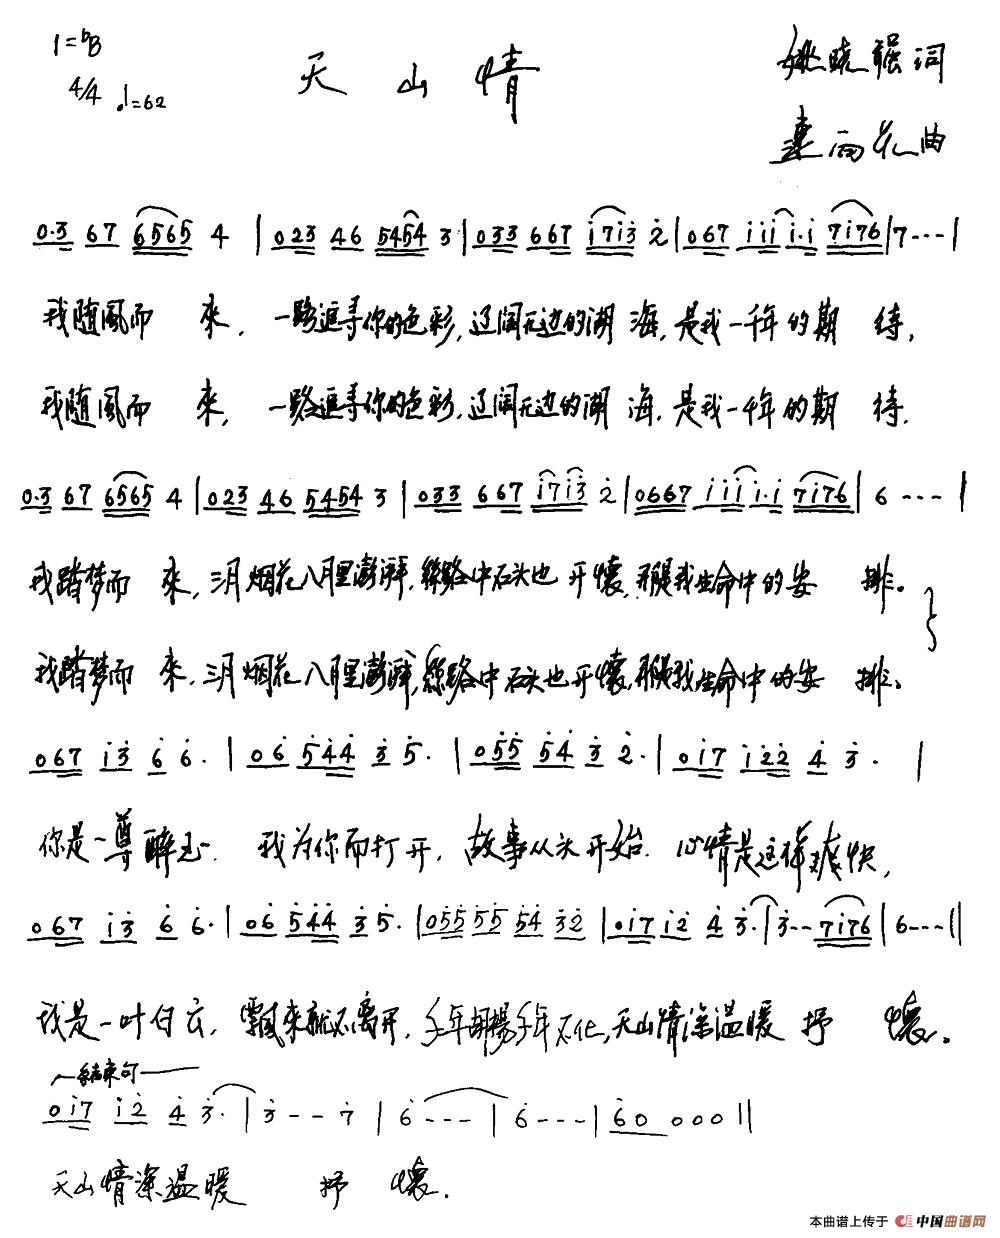 1=♭B
天山情
姚晓强词
4/4 ♩=62
雨花曲
0·3 67 6565 4 | 023 46 5454 3 | 033 667 i7i3 2 | 067 iii i·i 7i76 | 7--- |
我随風而 來，一路追寻你的色彩，辽阔无边的湖 海，是我一千年的期 待，
我随風而 來，一路追寻你的色彩，辽阔无边的湖 海，是我一千年的期 待，
0·3 67 6565 4 | 023 46 5454 3 | 033 667 i7i3 2 | 0667 iii i·i 7i76 | 6 --- |
我踏梦而 來，三月烟花八月里澎湃，丝路中石头也 开懷，那是我生命中的安 排。
我踏梦而 來，三月烟花八月里澎湃，丝路中石头也开懷，那是我生命中的安 排。
067 i3 6 6· | 06 544 3 5· | 055 54 3 2· | 0i7 i22 4 3· |
你是一尊醉玉 我为你而打开，故事从头开始 心情是这样爽快，
067 i3 6 6· | 06 544 3 5· | 055 55 54 32 | 0i7 i2 4 3· | 3-- 7i76 | 6--- :||
我是一叶白云，飄来就不离开，千年胡楊千年不化，天山情深温暖 抒 懷。
结束句
0i7 i2 4 3· | 3 -- 7 | 6 --- | 6 --- | 60 000 ||
天山情深温暖 抒 懷.
本曲谱上传于 中国曲谱网